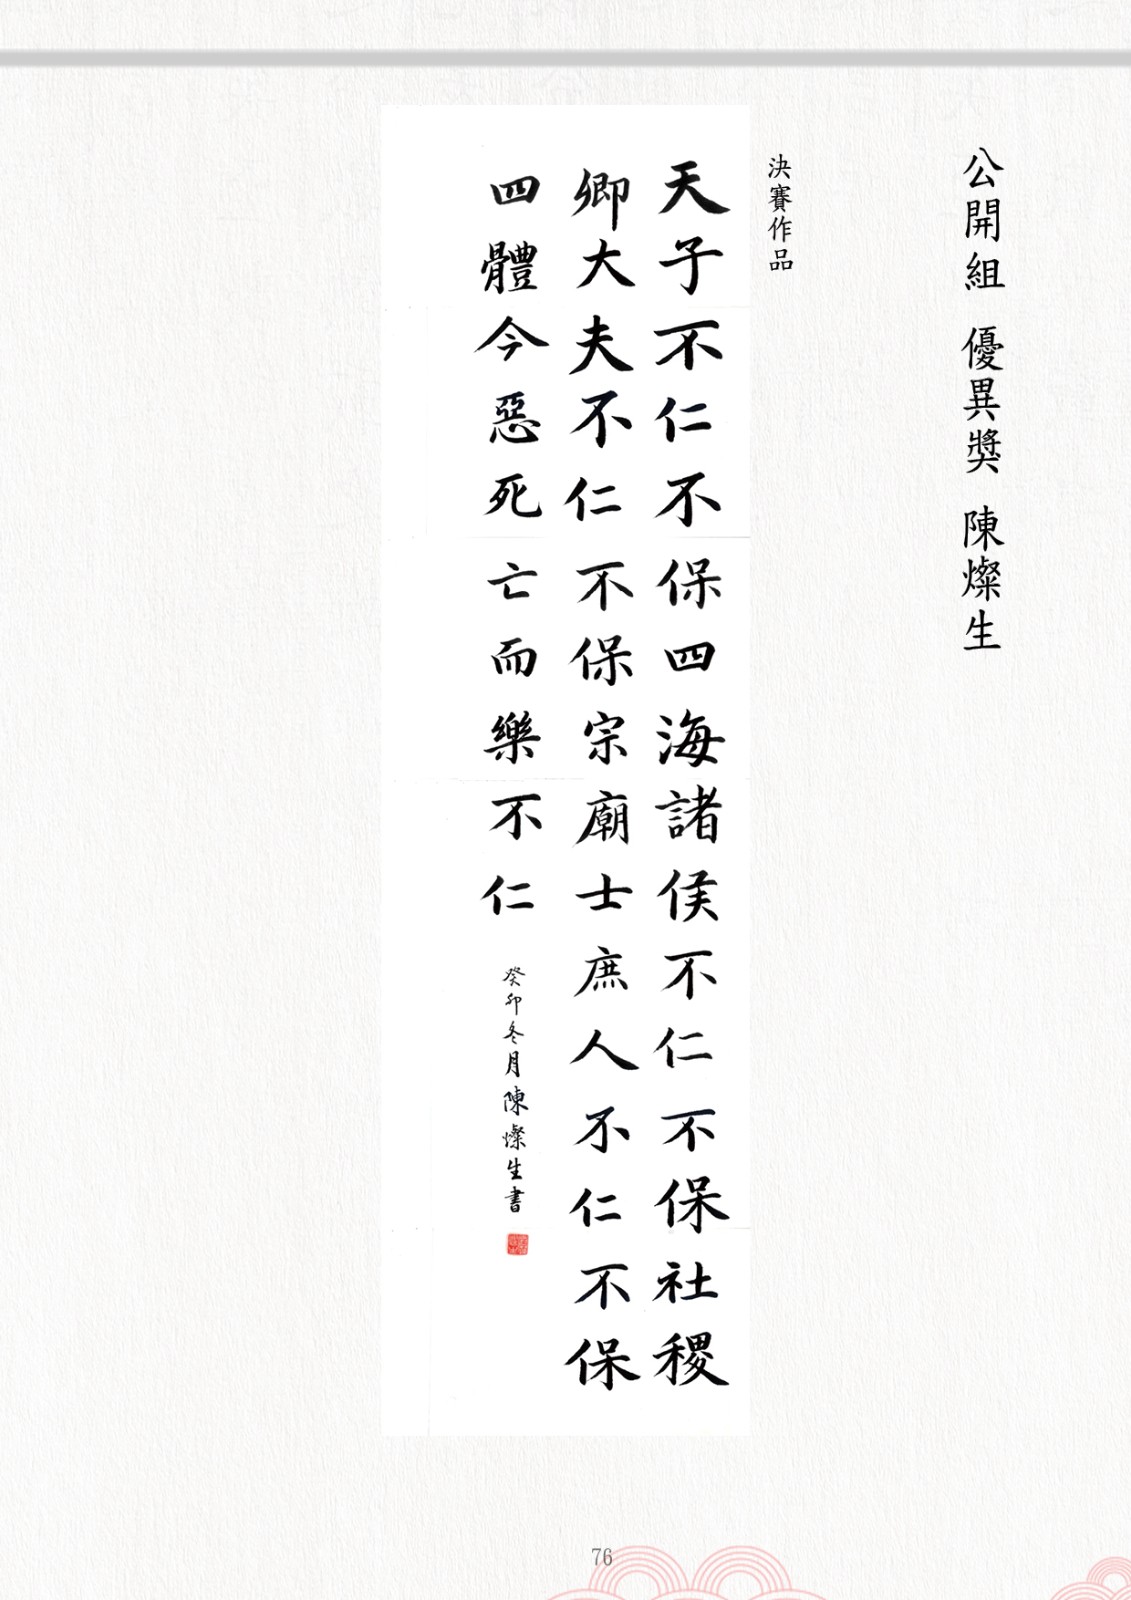 公開組 優異獎 陳燦生
決賽作品
天子不仁不保四海諸侯不仁不保社稷
卿大夫不仁不保宗廟士庶人不仁不保
四體今惡死亡而樂不仁
癸卯冬月陳燦生書
76